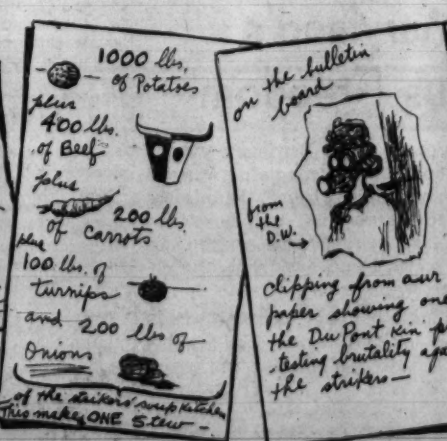 1000 lbs.
of Potatoes
plus
400 lbs.
of Beef
plus
200 lbs.
of Carrots
plus
100 lbs. of
turnips
and 200 lbs of
Onions
of the strikers' soup kitchen
This makes ONE Stew —
on the bulletin
board
from
the
D.W.
clipping from our
paper showing one
the Du Pont kin p
testing brutality aga
the strikers —